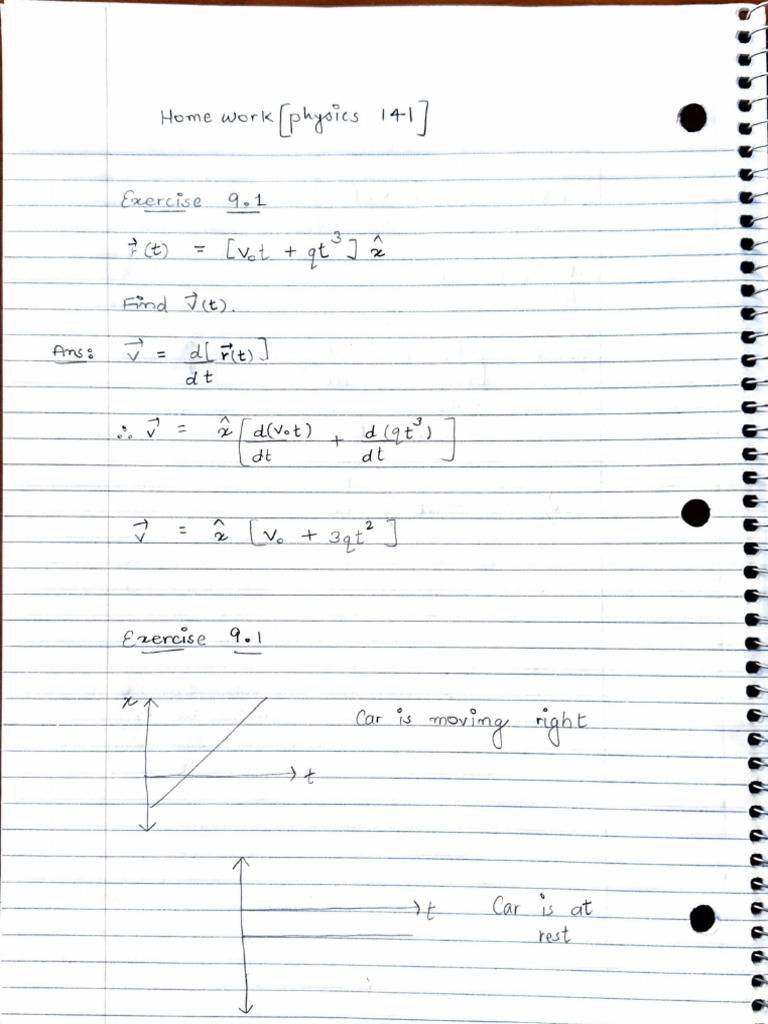 Home work [physics 141]
Exercise 9.1
r⃗(t) = [v₀t + qt³] x̂
Find v⃗(t).
Ans: v⃗ = d[r⃗(t)]/dt
∴ v⃗ = x̂ [d(v₀t)/dt + d(qt³)/dt]
v⃗ = x̂ [v₀ + 3qt²]
Exercise 9.1
x
Car is moving right
t
t Car is at
rest